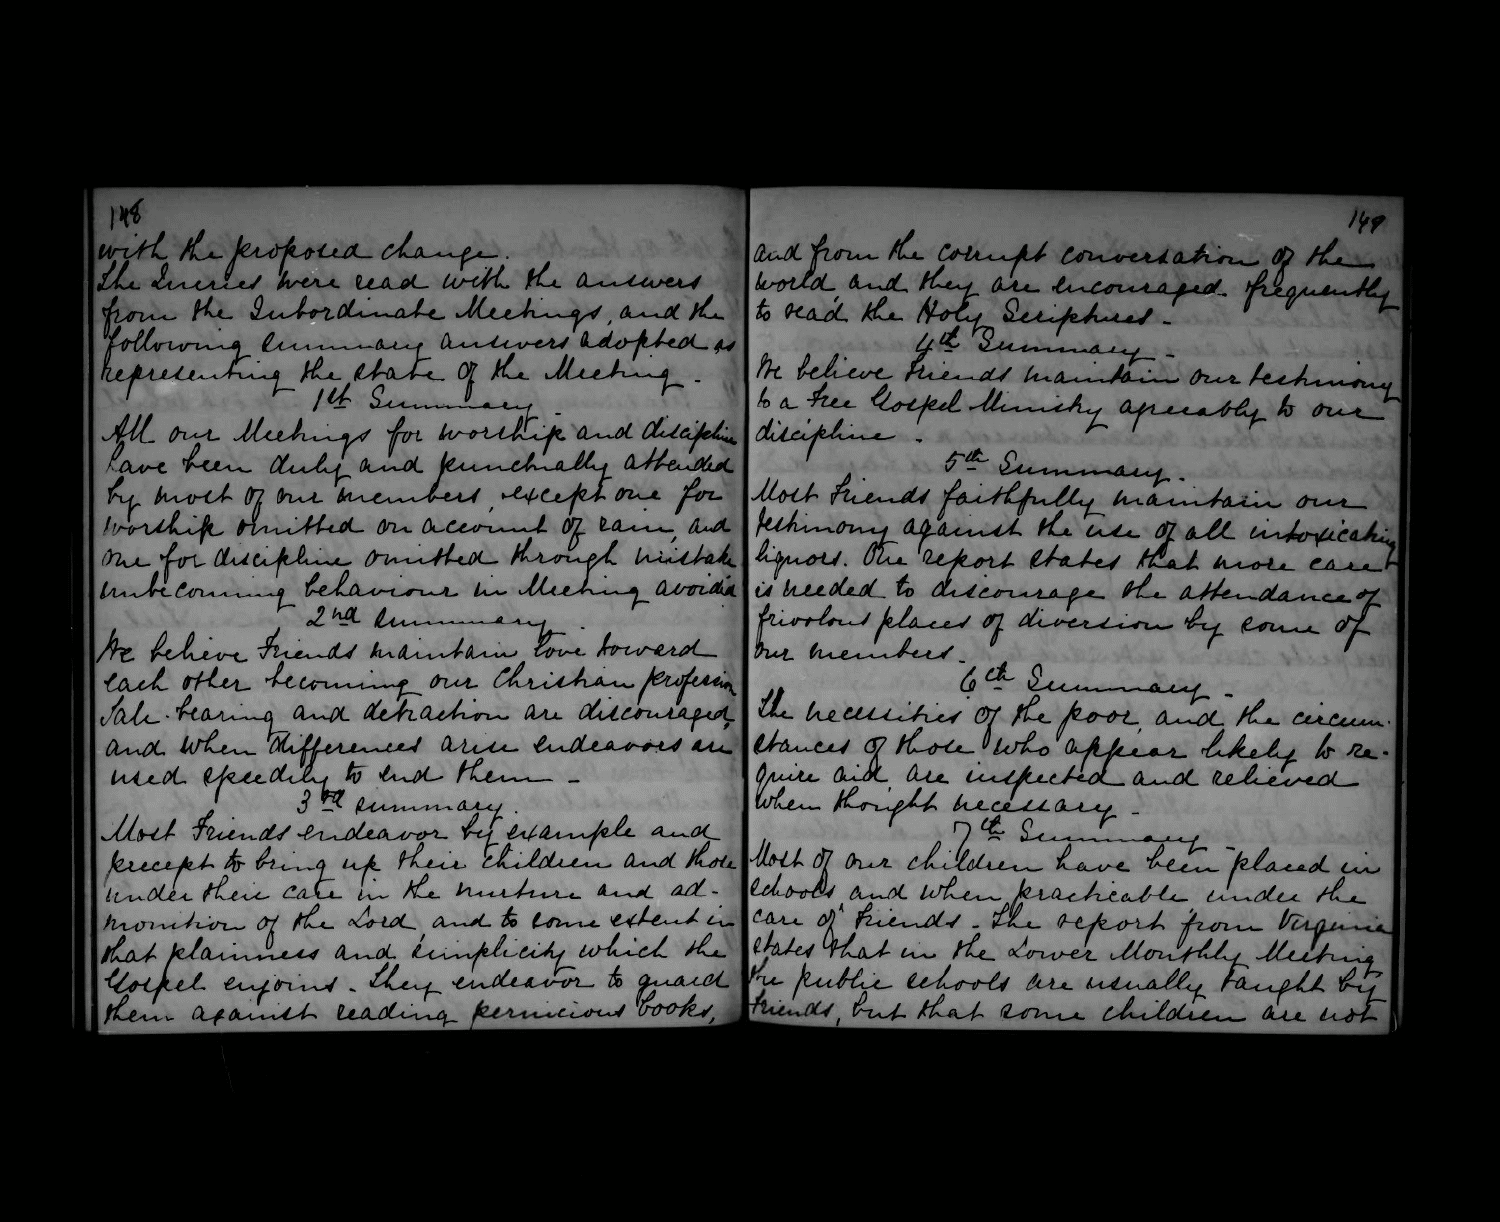 148
with the proposed change.
The Queries were read with the answers
from the Subordinate Meetings, and the
following summary answers adopted as
representing the state of the Meeting -
1st Summary -
All our Meetings for worship and discipline
have been duly and punctually attended
by most of our members, except one for
worship omitted on account of rain, and
one for discipline omitted through mistake
unbecoming behaviour in Meeting avoided
2nd summary.
We believe Friends maintain love toward
each other becoming our Christian profession
Tale-bearing and detraction are discouraged,
and when differences arise endeavors are
used speedily to end them -
3rd summary.
Most Friends endeavor by example and
precept to bring up their children and those
under their care in the nurture and ad-
monition of the Lord, and to some extent in
that plainness and simplicity which the
Gospel enjoins - They endeavor to guard
them against reading pernicious books,
149
and from the corrupt conversation of the
world and they are encouraged frequently
to read the Holy Scriptures -
4th Summary -
We believe Friends maintain our testimony
to a Free Gospel Ministry agreeably to our
discipline .
5th Summary.
Most Friends faithfully maintain our
testimony against the use of all intoxicating
liquors. One report states that more care
is needed to discourage the attendance of
frivolous places of diversion by some of
our members.
6th Summary -
The necessities of the poor, and the circum-
stances of those who appear likely to re-
quire aid, are inspected and relieved
when thought necessary -
7th Summary -
Most of our children have been placed in
schools, and when practicable, under the
care of Friends - The report from Virginia
states that in the Lower Monthly Meeting
the public schools are usually taught by
Friends, but that some children are not